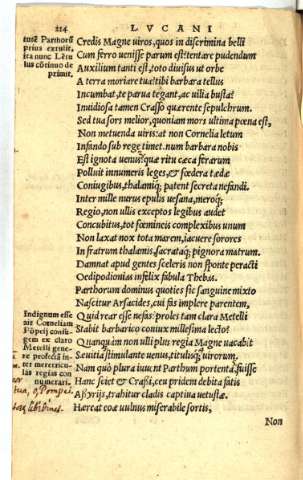 214 LVCANI
tutē Parthorū
prius extulit,
ita nunc Lētu
lus cōtinuo de
primit,
Credis Magne uiros, quos in discrimina belli
Cum ferro uenisse parum est: tentare pudendum
Auxilium tanti est, toto diuisus ut orbe
A terra moriare tua? tibi barbara tellus
Incumbat, te parua tegant, ac uilia busta?
Inuidiosa tamen Crasso quærente sepulchrum.
Sed tua sors melior, quoniam mors ultima pœna est,
Non metuenda uiris: at non Cornelia letum
Infando sub rege timet. num barbara nobis
Est ignota uenus? quæ ritu cæca ferarum
Polluit innumeris leges, & fœdera tædæ
Coniugibus, thalamiq; patent secreta nefandi.
Inter mille nurus epulis uesana, meroq;
Regio, non ullis exceptos legibus audet
Concubitus, tot fœmineis complexibus unum
Non laxat nox tota marem, iacuere sorores
In fratrum thalamis, sacrataq; pignora matrum.
Damnat apud gentes sceleris non sponte peracti
Oedipodionias infelix fabula Thebas.
Parthorum dominus quoties sic sanguine mixto
Nascitur Arsacides, cui fas implere parentem,
Indignum esse
ait Corneliam
Pōpeij consti
gem ex claro
Metelli gene
re profectā in
ter meretricu
las regias con
numerari.
Quid rear esse nefas? proles tam clara Metelli
Stabit barbarico coniux millesima lecto?
Quanquàm non ulli plus regia Magne uacabit
Sæuitia stimulante uenus, titulisq; uirorum.
Nam quò plura iuuent Parthum portenta, fuisse
Hanc sciet & Crassi, ceu pridem debita fatis
Assyrijs, trahitur cladis captiua uetustæ.
Hæreat eoæ uulnus miserabile sortis,
Non